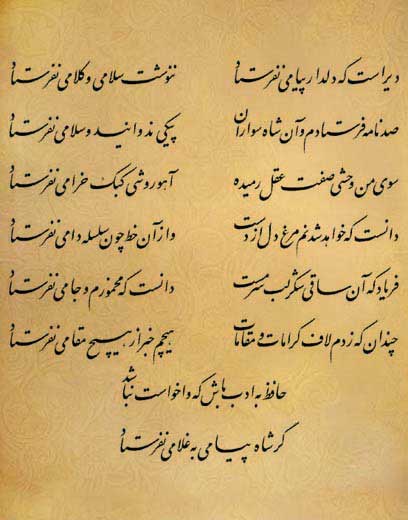 دیر است که دلدار پیامی نفرستاد ننوشت سلامی و کلامی نفرستاد
صد نامه فرستادم و آن شاه سواران پیکی ندوانید و سلامی نفرستاد
سوی من وحشی صفت عقل رمیده آهو روشی کبک خرامی نفرستاد
دانست که خواهد شدنم مرغ دل از دست و از آن خط چون سلسله دامی نفرستاد
فریاد که آن ساقی شکر لب سرمست دانست که مخمورم و جامی نفرستاد
چندان که زدم لاف کرامات و مقامات هیچم خبر از هیچ مقامی نفرستاد
حافظ به ادب باش که واخواست نباشد
گر شاه پیامی به غلامی نفرستاد